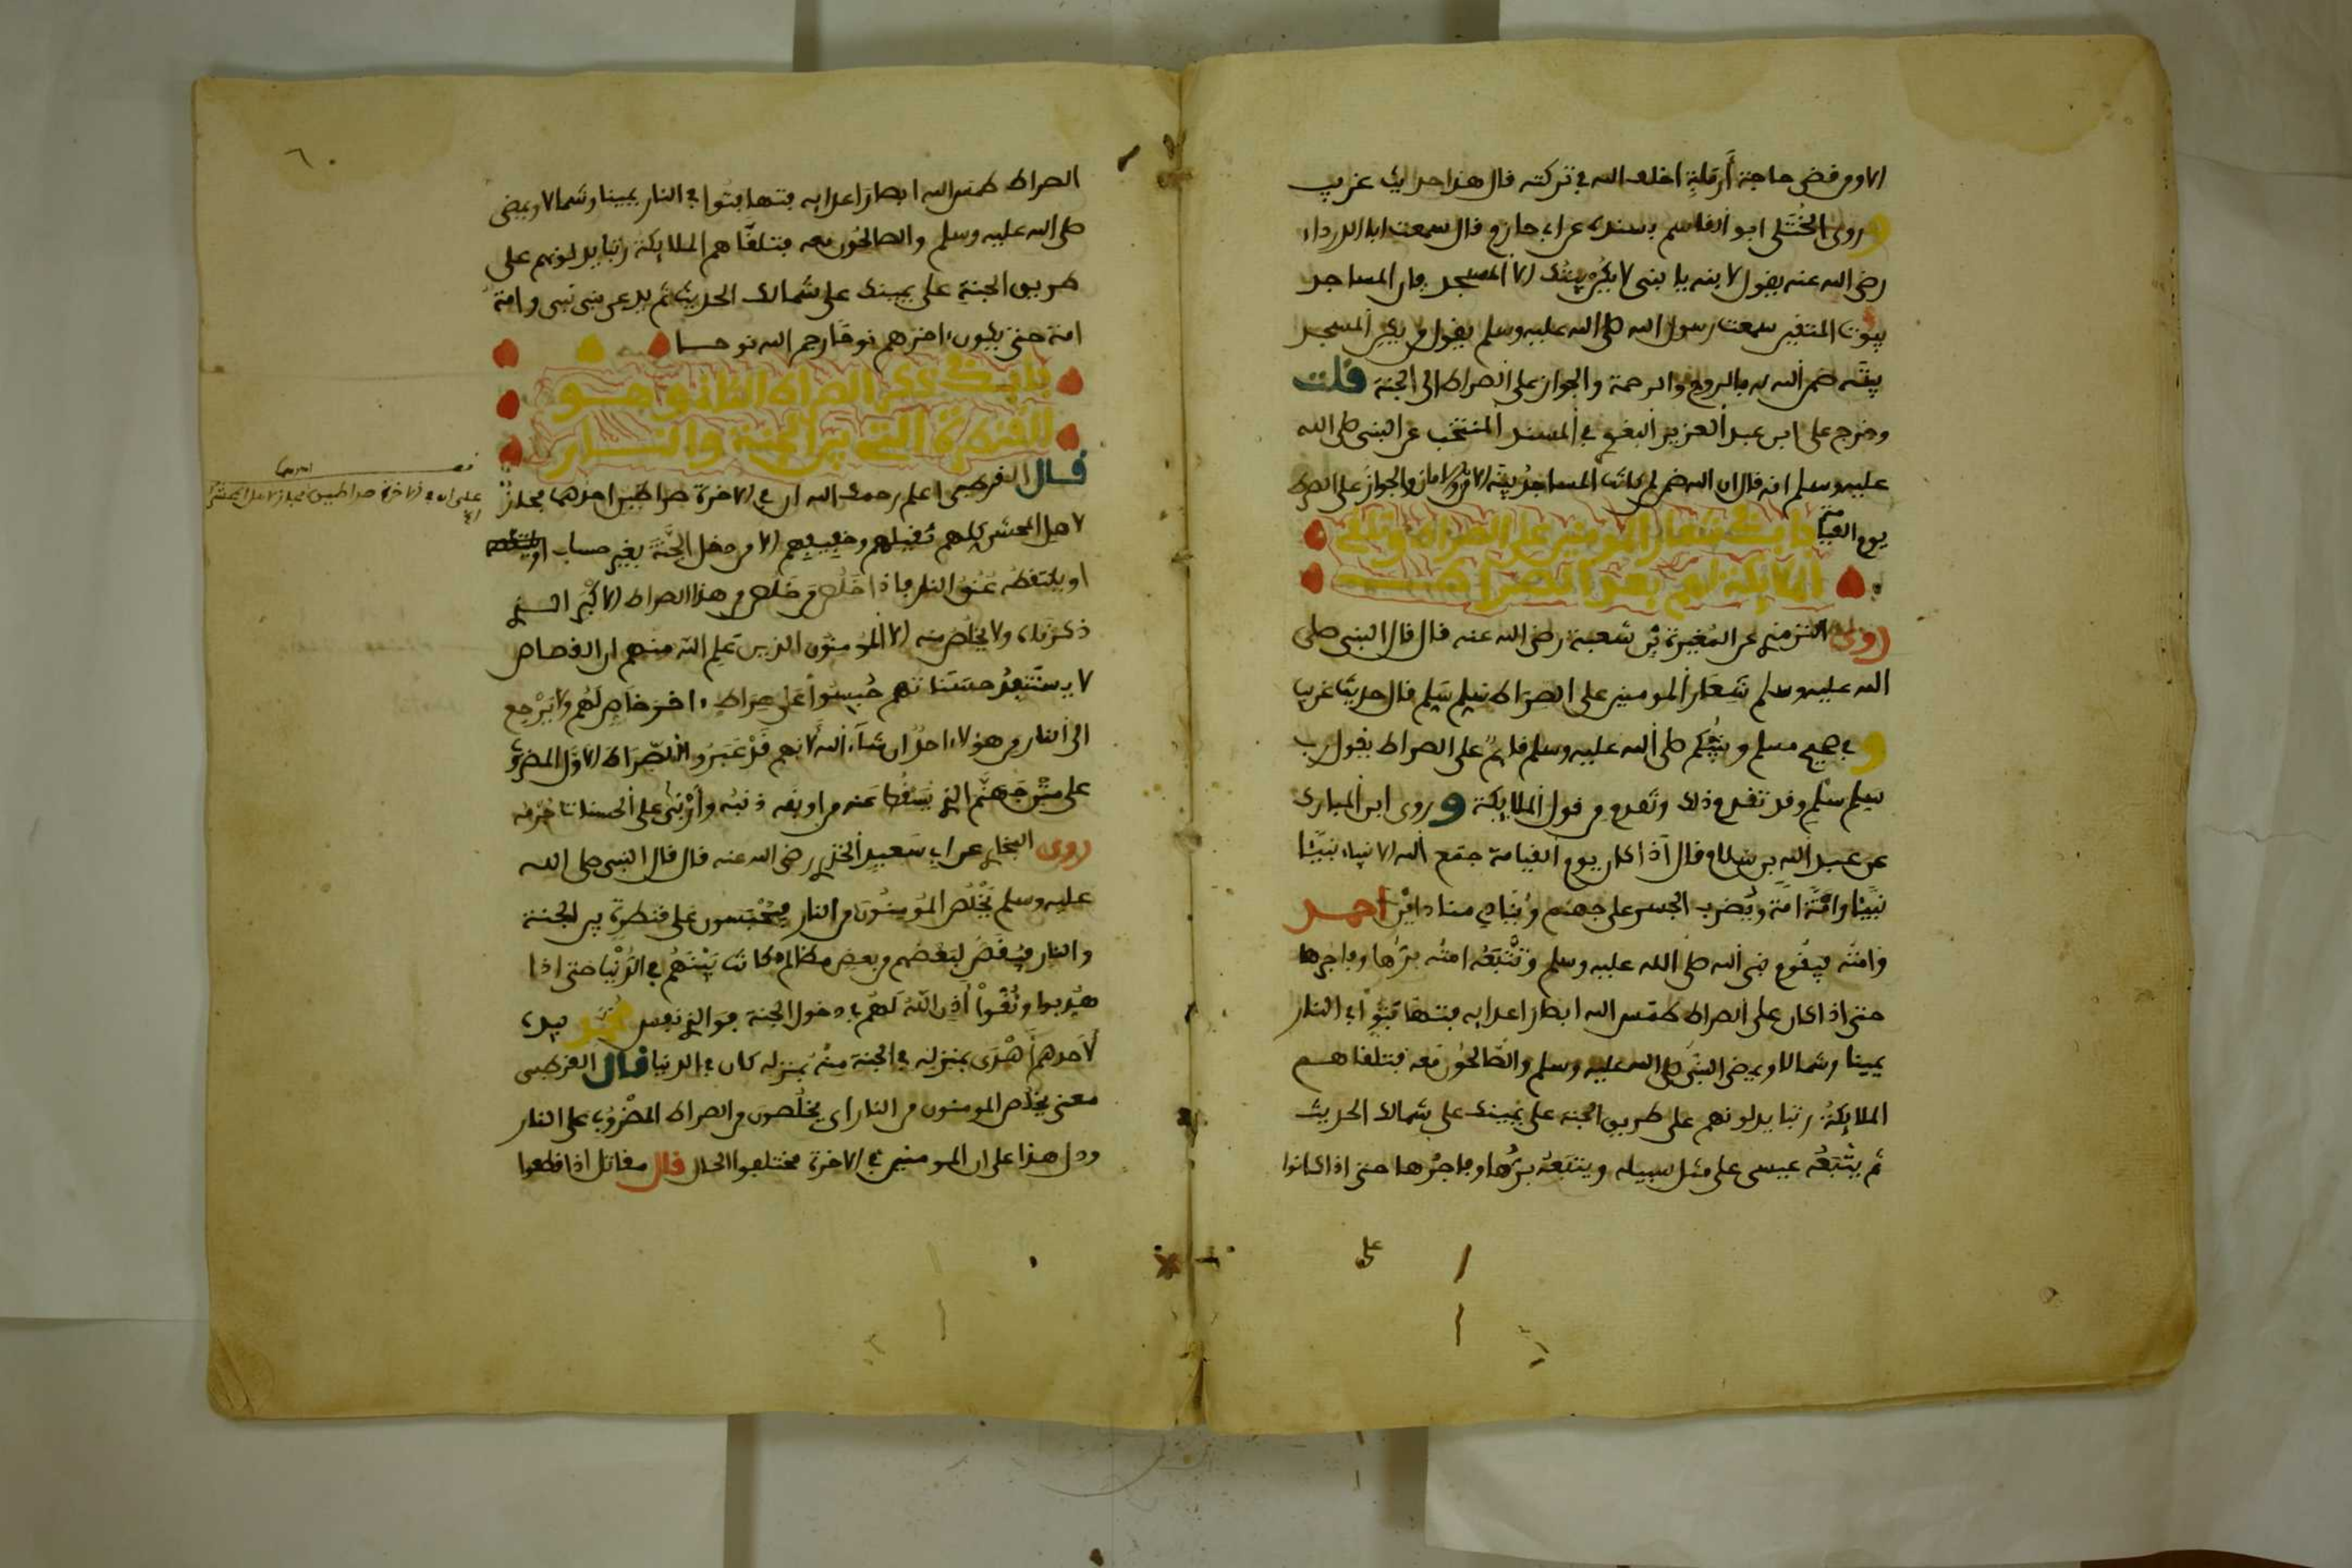 الا ومن قضى حاجة أرملة اخلف الله في تركته قال هذا حديث غريب
وروى الختلي ابو القاسم بسنده عن ابي حازم قال سمعت ابا الدرداء
رضى الله عنه يقول لابنه يا بنى لا يكن بيتك الا المسجد فان المساجد
بيوت المتقين سمعت رسول الله صلى الله عليه وسلم يقول من يكن المسجد
بيته ضمن الله له بالروح والرحمة والجواز على الصراط الى الجنة قلت
وخرج على ابن عبد العزيز البغوي في المسند المنتخب عن النبى صلى الله
عليه وسلم انه قال ان الله ضمن لمن كانت المساجد بيته الامن والامان والجواز على الصراط
يوم القيامة باب في شعار المومنين على الصراط وتلقي
الملائكة لهم بعد الصراط
روى الترمذي عن المغيرة بن شعبة رضى الله عنه قال قال النبى صلى
الله عليه وسلم شعار المومنين على الصراط سلم سلم قال حديث غريب
وفي صحيح مسلم ونبيكم صلى الله عليه وسلم قائم على الصراط يقول رب
سلم سلم وقد تقدم ذلك وتقدم من قول الملائكة وروى ابن المبارك
عن عبد الله بن سلام قال اذا كان يوم القيامة جمع الله الانبياء نبيا
نبيا وامة امة ويضرب الجسر على جهنم وينادي مناد اين احمد
وامته فيقوم نبى الله صلى الله عليه وسلم وتتبعه امته برها وفاجرها
حتى اذا كان على الصراط طمس الله ابصار اعدايه فتهافتوا في النار
يمينا وشمالا ويمضى النبى صلى الله عليه وسلم والصالحون معه فتلقاهم
الملائكة رتبا يدلونهم على طريق الجنة على يمينك على شمالك الحديث
ثم يتبعه عيسى على مثل سبيله ويتبعه برها وفاجرها حتى اذا كانوا
على
٦٠
الصراط طمس الله ابصار اعدايه فتهافتوا في النار يمينا وشمالا ويمضى
صلى الله عليه وسلم والصالحون معه فتلقاهم الملائكة رتبا يدلونهم على
طريق الجنة على يمينك على شمالك الحديث ثم يدعى نبى نبى وامة
امة حتى يكون اخرهم نوحا رحم الله نوحا
باب في ذكر الصراط الثاني وهو
القنطرة التي بين الجنة والنار
قال القرطبى اعلم رحمك الله ان في الاخرة صراطين احدهما مجاز
لاهل المحشر كلهم ثقيلهم وخفيفهم الا من دخل الجنة بغير حساب
او يلتقطه عنق النار فاذا خلص من خلص من هذا الصراط الاكبر الذي
ذكرناه ولا يخلص منه الا المومنون الذين علم الله منهم ان القصاص
لا يستنفد حسناتهم حبسوا على صراط اخر خاص لهم ولا يرجع
الى النار من هؤلاء احد ان شاء الله لانهم قد عبروا الصراط الاول المضروب
على متن جهنم الذي يسقط عنه من اوبقه ذنبه وأربى على الحسنات جرمه
روى البخاري عن ابي سعيد الخدري رضى الله عنه قال قال النبى صلى الله
عليه وسلم يخلص المؤمنون من النار فيحبسون على قنطرة بين الجنة
والنار فيقص لبعضهم من بعض مظالم كانت بينهم في الدنيا حتى اذا
هذبوا ونقوا أذن الله لهم في دخول الجنة فوالذي نفس محمد بيده
لاحدهم أهدى بمنزله في الجنة منه بمنزله كان في الدنيا قال القرطبى
معنى يخلص المومنون من النار اي يخلصون من الصراط المضروب على النار
ودل هذا على ان المومنين في الاخرة مختلفوا الحال قال مقاتل اذا قطعوا